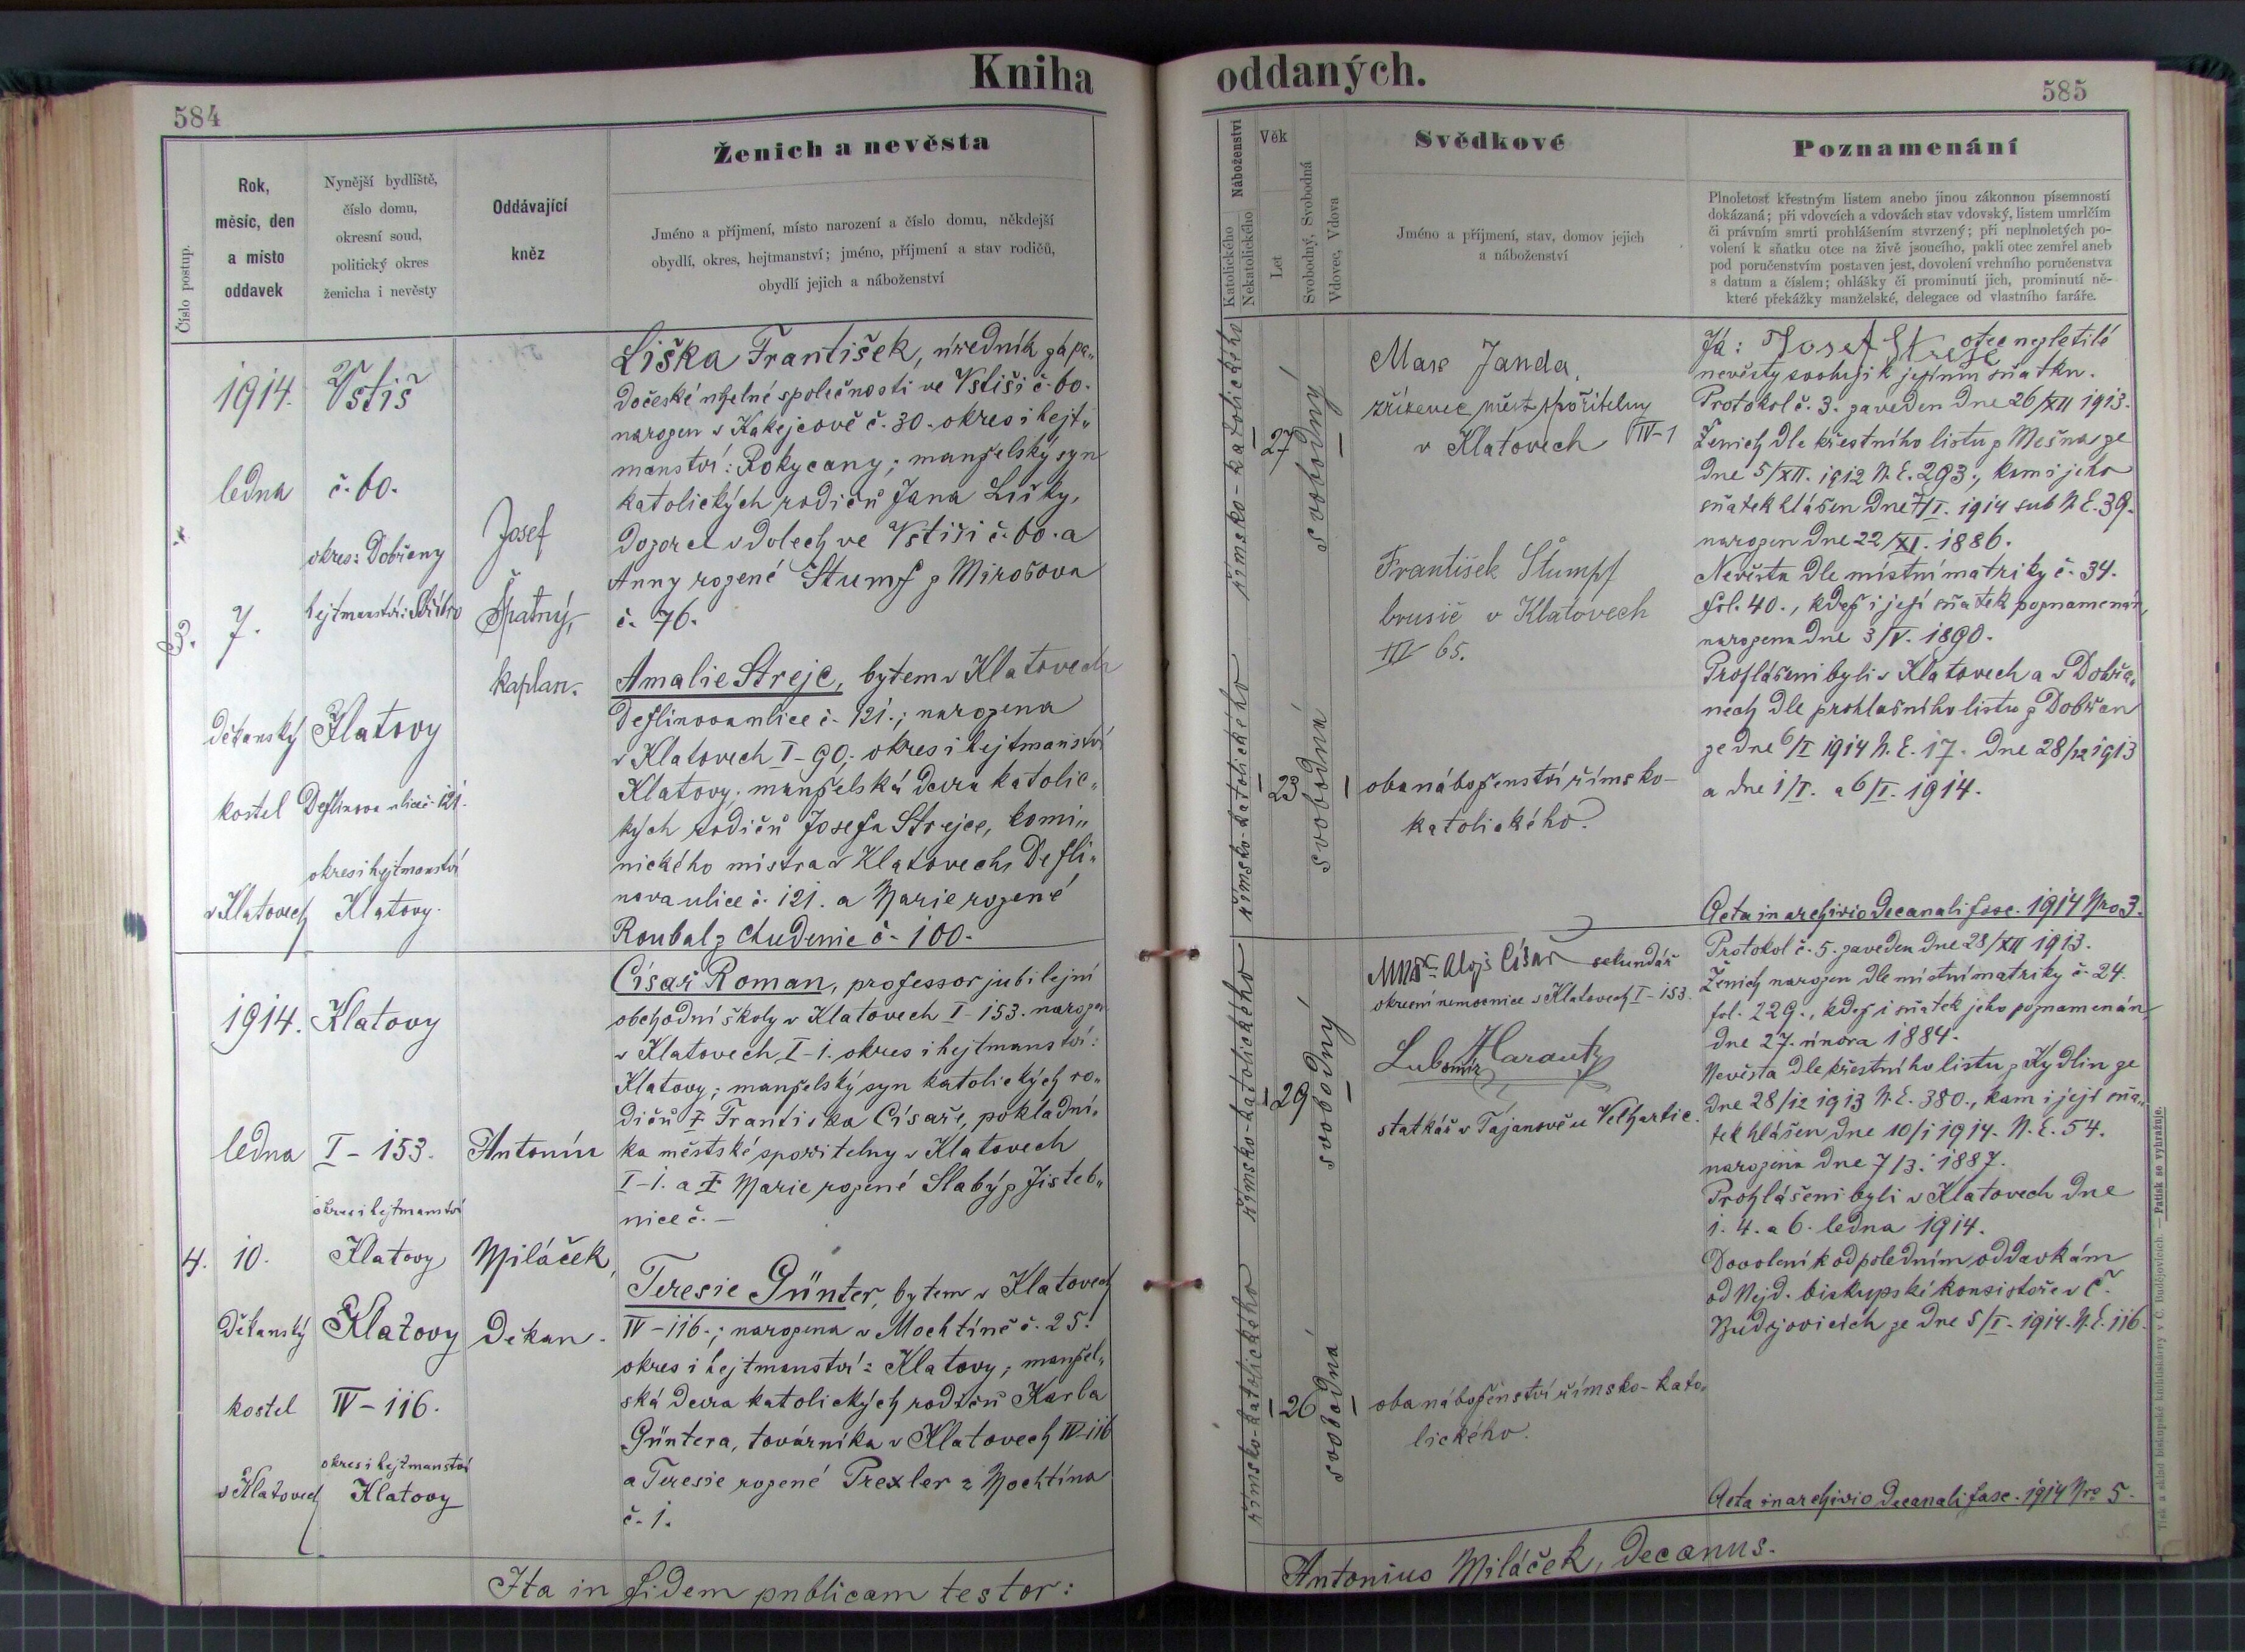 Kniha
584
Číslo postup.
Rok,
měsíc, den
a místo
oddavek
Nynější bydliště,
číslo domu,
okresní soud,
politický okres
ženicha i nevěsty
Oddávající
kněz
Ženich a nevěsta
Jméno a příjmení, místo narození a číslo domu, někdejší
obydlí, okres, hejtmanství; jméno, příjmení a stav rodičů,
obydlí jejich a náboženství
3.
1914.
ledna
7.
děkanský
kostel
v Klatovech
Vstiš
č. 60.
okres: Dobřany
hejtmanství: Stříbro
Klatovy
Deflinova ulice č. 121.
okres i hejtmanství
Klatovy.
Josef
Špatný,
kaplan.
Liška František, úředník zápa„
dočeské uhelné společnosti ve Vstiši č. 60.
narozen v Kakejcově č. 30. okres i hejt„
manství: Rokycany; manželský syn
katolických rodičů Jana Lišky,
dozorce v dolech ve Vstiši č. 60. a
Anny rozené Štumpf z Mirošova
č. 76.
Amalie Strejc, bytem v Klatovech
Deflinova ulice č. 121.; narozena
v Klatovech I-90; okres i hejtmanství
Klatovy. manželská dcera katolic„
kých rodičů Josefa Strejce, komi„
nického mistra v Klatovech, Defli„
nova ulice č. 121. a Marie rozené
Roubal z Chudenic č. 100.
4.
1914.
ledna
10.
Děkanský
kostel
v Klatovech
Klatovy
I-153.
okres i hejtmanství
Klatovy
Klatovy
IV-116.
okres i hejtmanství
Klatovy
Antonín
Miláček,
děkan.
Císař Roman, professor jubilejní
obchodní školy v Klatovech I-153. narozen
v Klatovech, I-1. okres i hejtmanství:
Klatovy; manželský syn katolických ro„
dičů † Františka Císaře, pokladní„
ka městské spořitelny v Klatovech
I-1. a † Marie rozené Slabý z Jisteb„
nice č. —
Teresie Günter, bytem v Klatovech
IV-116.; narozena v Mochtíně č. 25.
okres i hejtmanství: Klatovy; manžel„
ská dcera katolických rodičů Karla
Güntera, továrníka v Klatovech IV-116
a Teresie rozené Trexler z Mochtína
č. 1.
Ita in fidem publicam testor:
oddaných.
585
Náboženství
Katolického
Nekatolického
Věk
Let
Svobodný, Svobodná
Vdovec, Vdova
Svědkové
Jméno a příjmení, stav, domov jejich
a náboženství
Poznamenání
Plnoletosť křestným listem anebo jinou zákonnou písemností
dokázaná; při vdovcích a vdovách stav vdovský, listem umrlčím
či právním smrti prohlášením stvrzený; při neplnoletých po-
volení k sňatku otce na živě jsoucího, pakli otec zemřel aneb
pod poručenstvím postaven jest, dovolení vrchního poručenstva
s datum a číslem; ohlášky či prominutí jich, prominutí ně-
které překážky manželské, delegace od vlastního faráře.
římsko-katolického
27
svobodný
římsko-katolického
23
svobodná
Max Janda,
zřízenec měst. spořitelny
v Klatovech IV-1
František Štumpf
brusič v Klatovech
III 65.
oba náboženství římsko-
katolického.
Já: Josef Strejc otec nezletilé
nevěsty svoluji k jejímu sňatku.
Protokol č. 3. zaveden dne 26/XII 1913.
Ženich dle křestního listu z Mešna ze
dne 5/XII. 1912 N.E. 293., kam i jeho
sňatek hlášen dne 7/I. 1914 sub N.E. 39.
narozen dne 22/XI. 1886.
Nevěsta dle místní matriky č. 34.
fol. 40., kdež i její sňatek poznamenán,
narozena dne 3/V. 1890.
Prohlášeni byli v Klatovech a v Dobřa„
nech dle prohlašního listu z Dobřan
ze dne 6/I 1914 N.E. 17. dne 28/12 1913
a dne 1/I. a 6/I. 1914.
Acta in archivio decanali fasc. 1914 Nro 3.
římsko-katolického
29
svobodný
římsko-katolického
26
svobodná
MUDr. Alojs Císař sekundář
okresní nemocnice v Klatovech I-153.
Lubomír Harantz
statkář v Tájanově u Velhartic.
oba náboženství římsko-kato„
lického.
Protokol č. 5. zaveden dne 28/XII 1913.
Ženich narozen dle místní matriky č. 24.
fol. 229., kdež i sňatek jeho poznamenán,
dne 27. února 1884.
Nevěsta dle křestního listu z Kydlin ze
dne 28/12 1913 N.E. 380., kam i její sňa„
tek hlášen dne 10/1 1914. N.E. 54.
narozena dne 7/3. 1887.
Prohlášeni byli v Klatovech dne
1. 4. a 6. ledna 1914.
Dovolení k odpoledním oddavkám
od Nejd. biskupské konsistoře v Č.
Budějovicích ze dne 5/I. 1914. N.E. 116.
Acta in archivio decanali fasc. 1914 Nro 5.
Antonius Miláček, decanus.
Tisk a sklad biskupské knihtiskárny v Č. Budějovicích. — Patisk se vyhražuje.